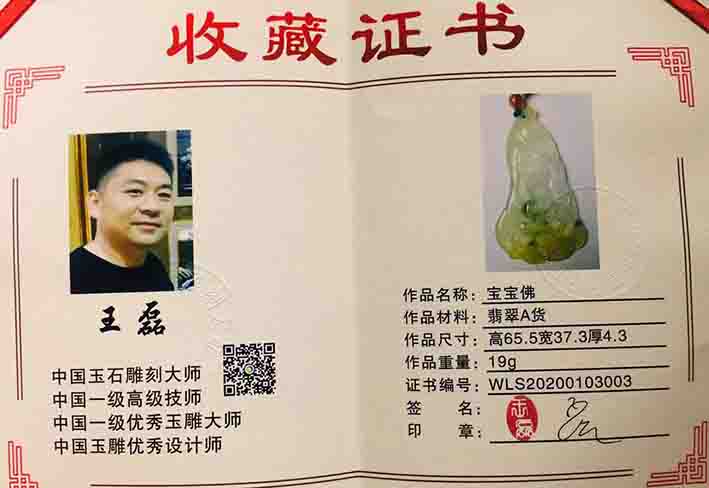 收藏证书
王磊
中国玉石雕刻大师
中国一级高级技师
中国一级优秀玉雕大师
中国玉雕优秀设计师
作品名称：宝宝佛
作品材料：翡翠A货
作品尺寸：高65.5宽37.3厚4.3
作品重量：19g
证书编号：WLS20200103003
签 名：
印 章：